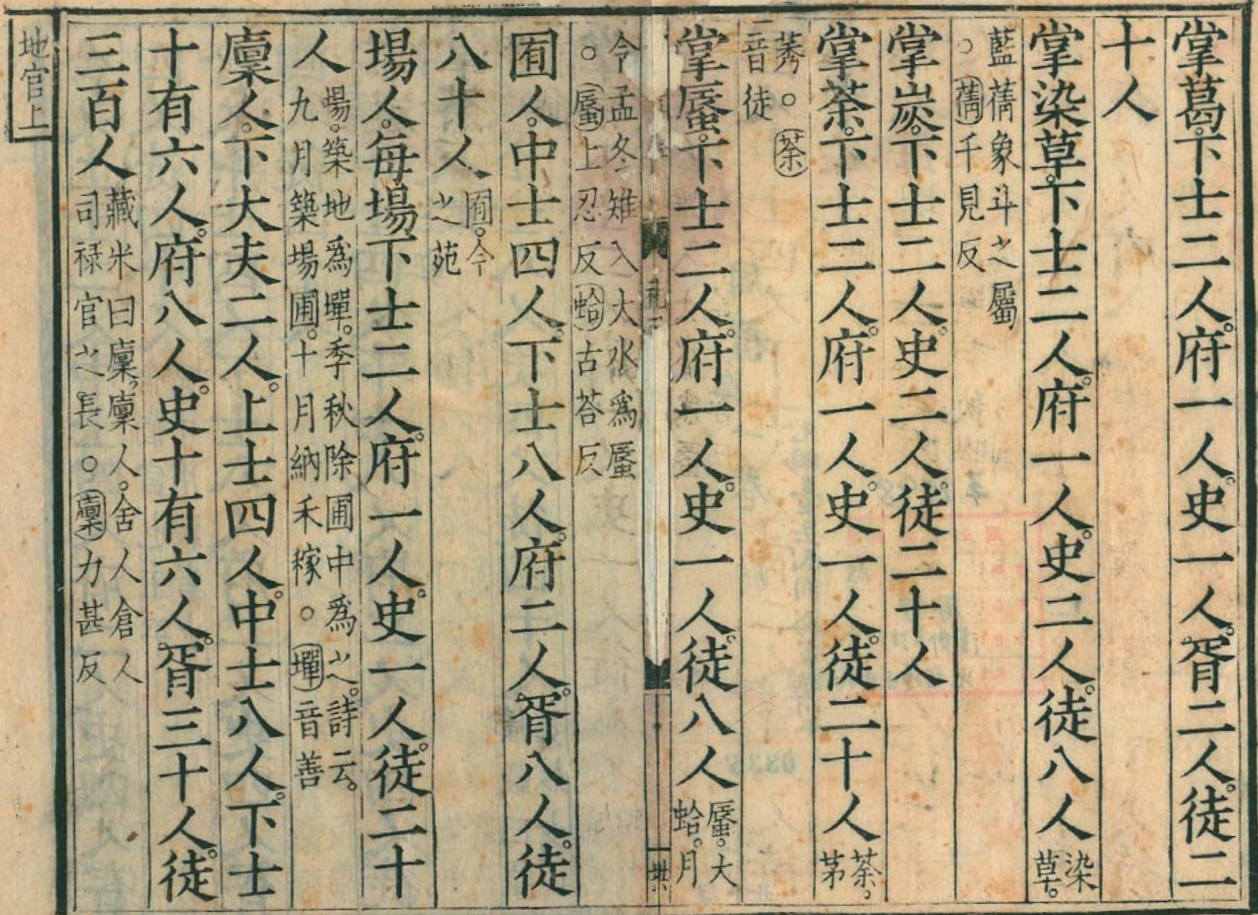 掌葛。下士二人。府一人。史一人。胥二人。徒二
十人
掌染草。下士二人。府一人。史二人。徒八人染草。
藍蒨象斗之屬。○蒨千見反
掌炭。下士二人。史二人。徒二十人
掌荼。下士二人。府一人。史一人。徒二十人荼。茅
莠。○荼音徒
掌蜃。下士二人。府一人。史一人。徒八人蜃。大蛤。月
令孟冬雉入大水爲蜃。○蜃上忍反蛤古荅反
囿人。中士四人。下士八人。府二人。胥八人。徒
八十人囿。今之苑
場人。每場下士二人。府一人。史一人。徒二十
人場。築地爲墠。季秋除圃中爲之。詩云。九月築場圃。十月納禾稼。○墠音善
廩人。下大夫二人。上士四人。中士八人。下士
十有六人。府八人。史十有六人。胥三十人。徒
三百人藏米曰廩。廩人。舍人倉人司祿官之長。○廩力甚反
地官上